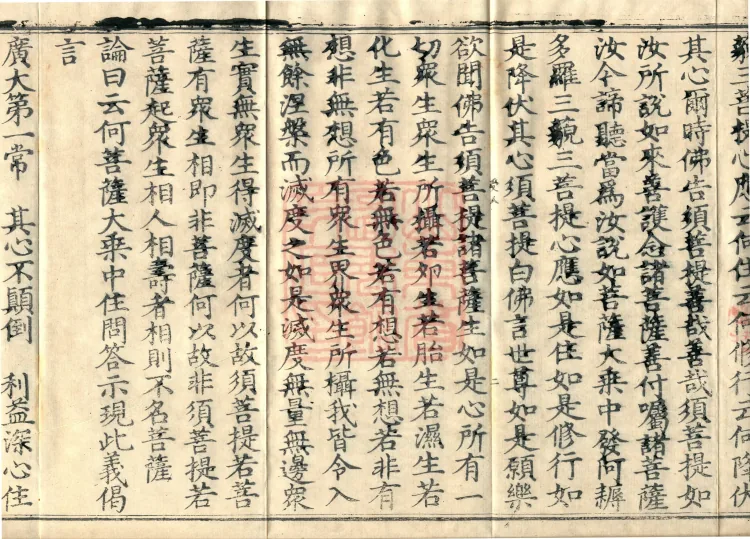 藐三菩提心應云何住云何修行云何降伏
其心爾時佛告須菩提善哉善哉須菩提如
汝所說如來善護念諸菩薩善付囑諸菩薩
汝今諦聽當爲汝說如菩薩大乘中發阿耨
多羅三藐三菩提心應如是住如是修行如
是降伏其心須菩提白佛言世尊如是願樂
欲聞佛告須菩提諸菩薩生如是心所有一
切衆生衆生所攝若卵生若胎生若濕生若
化生若有色若無色若有想若無想若非有
想非無想所有衆生界衆生所攝我皆令入
無餘涅槃而滅度之如是滅度無量無邊衆
生實無衆生得滅度者何以故須菩提若菩
薩有衆生相即非菩薩何以故非須菩提若
菩薩起衆生相人相壽者相則不名菩薩
論曰云何菩薩大乘中住問答示現此義偈
言
廣大第一常　其心不顛倒　利益深心住